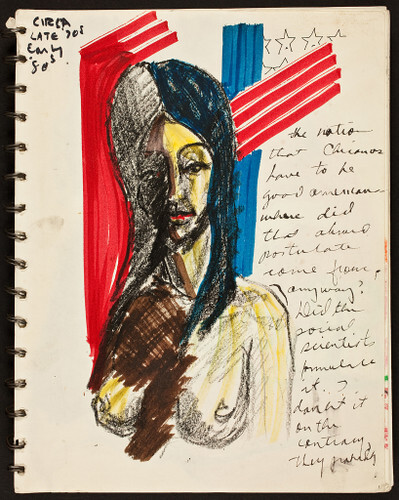 CIRCA
LATE 70s
Early
'80s.
the notion
that Chicanos
have to be
good americans
where did
that absurd
postulate
come from,
anyway?
Did the
social
scientists
formulate
it.?
it
on the
contrary,
They